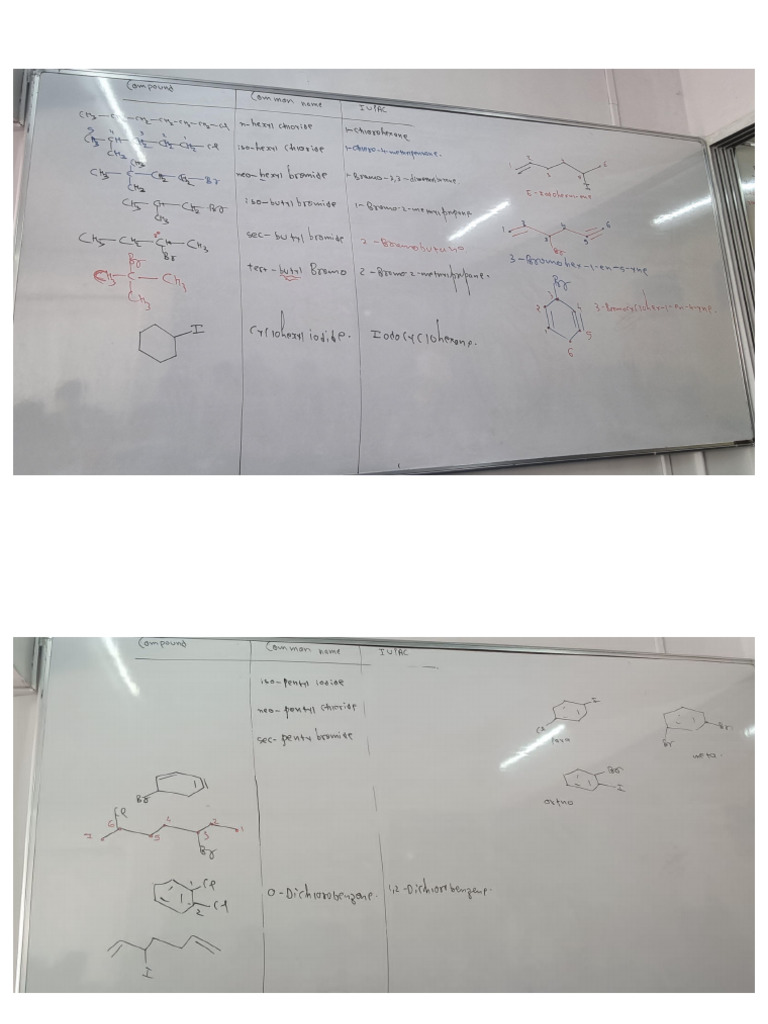 Compound Common name IUPAC
CH3-CH2-CH2-CH2-CH2-CH2-Cl n-hexyl chloride 1-chlorohexane
CH3-CH-CH2-CH2-CH2-Cl iso-hexyl chloride 1-chloro-4-methylpentane.
CH3
CH3
CH3-C-CH2-CH2-Br neo-hexyl bromide 1-Bromo-3,3-dimethylbutane
CH3
CH3-CH-CH2-Br iso-butyl bromide 1-Bromo-2-methylpropane
CH3
CH3-CH2-CH-CH3 sec-butyl bromide 2-Bromobutane
Br
Br
CH3-C-CH3 tert-butyl Bromo 2-Bromo 2-methylpropane.
CH3
I Cyclohexyl iodide. Iodocyclohexane.
1 2 3 4 5 6
5-
1 3 4 5 6
Br
3-Bromohex-1-en-5-yne
Br
2 3 4 5 6
Compound Common name IUPAC
iso-pentyl iodide
neo-pentyl chloride
sec-pentyl bromide
Br
Cl
7 6 5 4 3 2 1
Br
1 Cl
2 Cl
O-Dichlorobenzene. 1,2-Dichlorobenzene.
I
I
Cl
para
Br
Br
meta.
Br
I
ortho